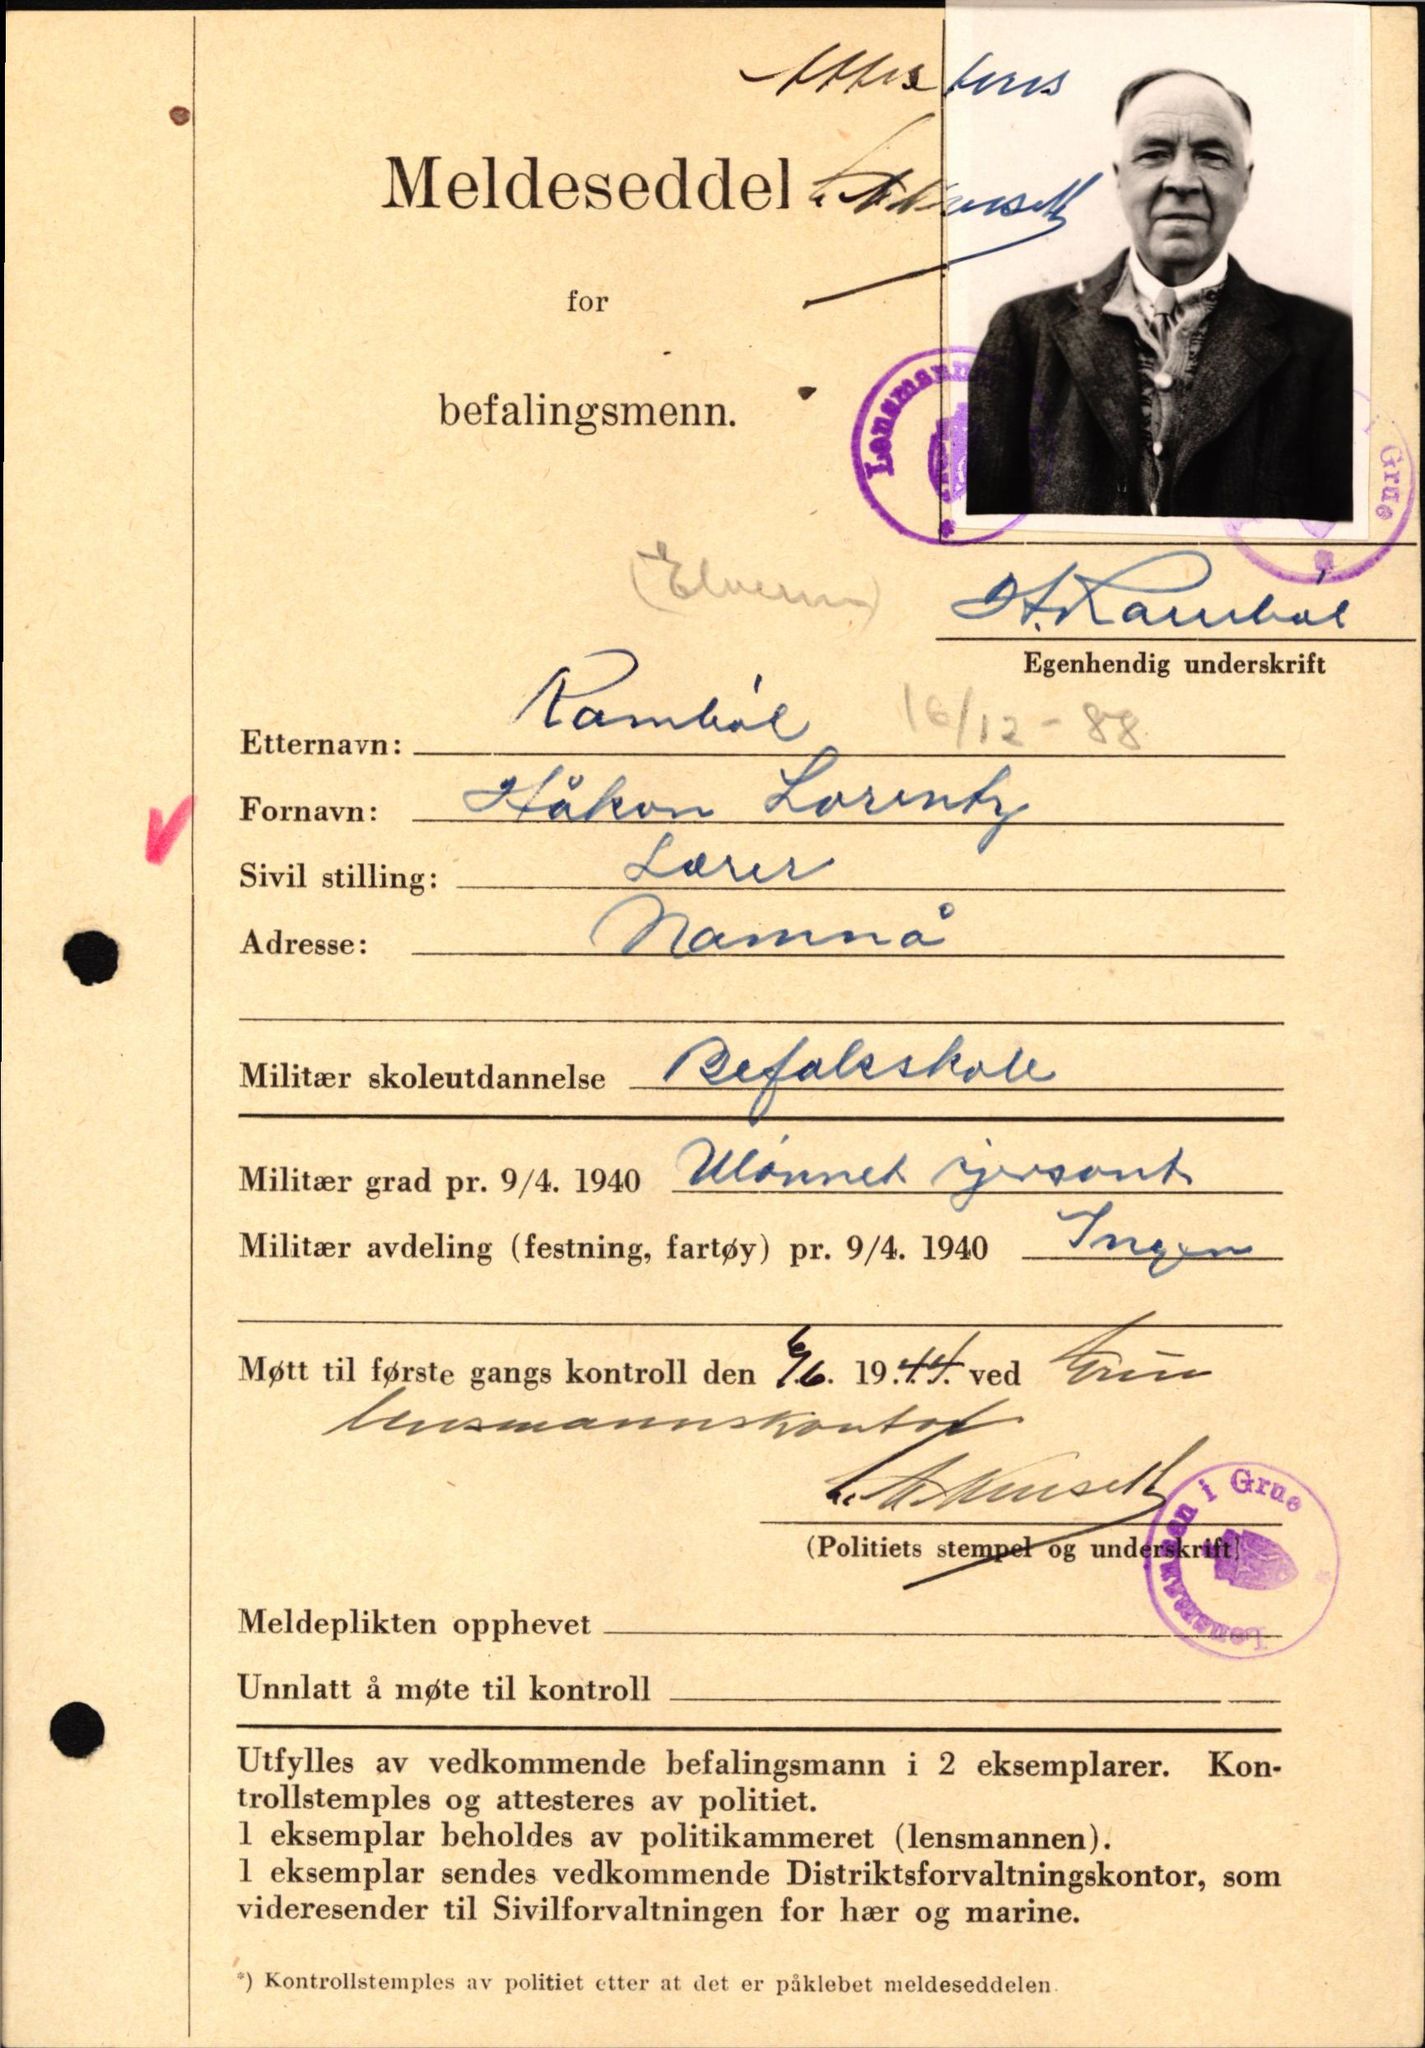 Attesteres
Meldeseddel
for
befalingsmenn.
Lensmannen i Grue
(Elverum)
H. Rambøl
Egenhendig underskrift
Etternavn: Rambøl 16/12-88
Fornavn: Håkon Lorentz
Sivil stilling: Lærer
Adresse: Namnå
Militær skoleutdannelse Befalsskole
Militær grad pr. 9/4. 1940 Ulønnet sjersant
Militær avdeling (festning, fartøy) pr. 9/4. 1940 Ingen
Møtt til første gangs kontroll den 6/6. 1944. ved Grue
lensmannskontor
(Politiets stempel og underskrift)
Lensmannen i Grue
Meldeplikten opphevet
Unnlatt å møte til kontroll
Utfylles av vedkommende befalingsmann i 2 eksemplarer. Kon-
trollstemples og attesteres av politiet.
1 eksemplar beholdes av politikammeret (lensmannen).
1 eksemplar sendes vedkommende Distriktsforvaltningskontor, som
videresender til Sivilforvaltningen for hær og marine.
*) Kontrollstemples av politiet etter at det er påklebet meldeseddelen.